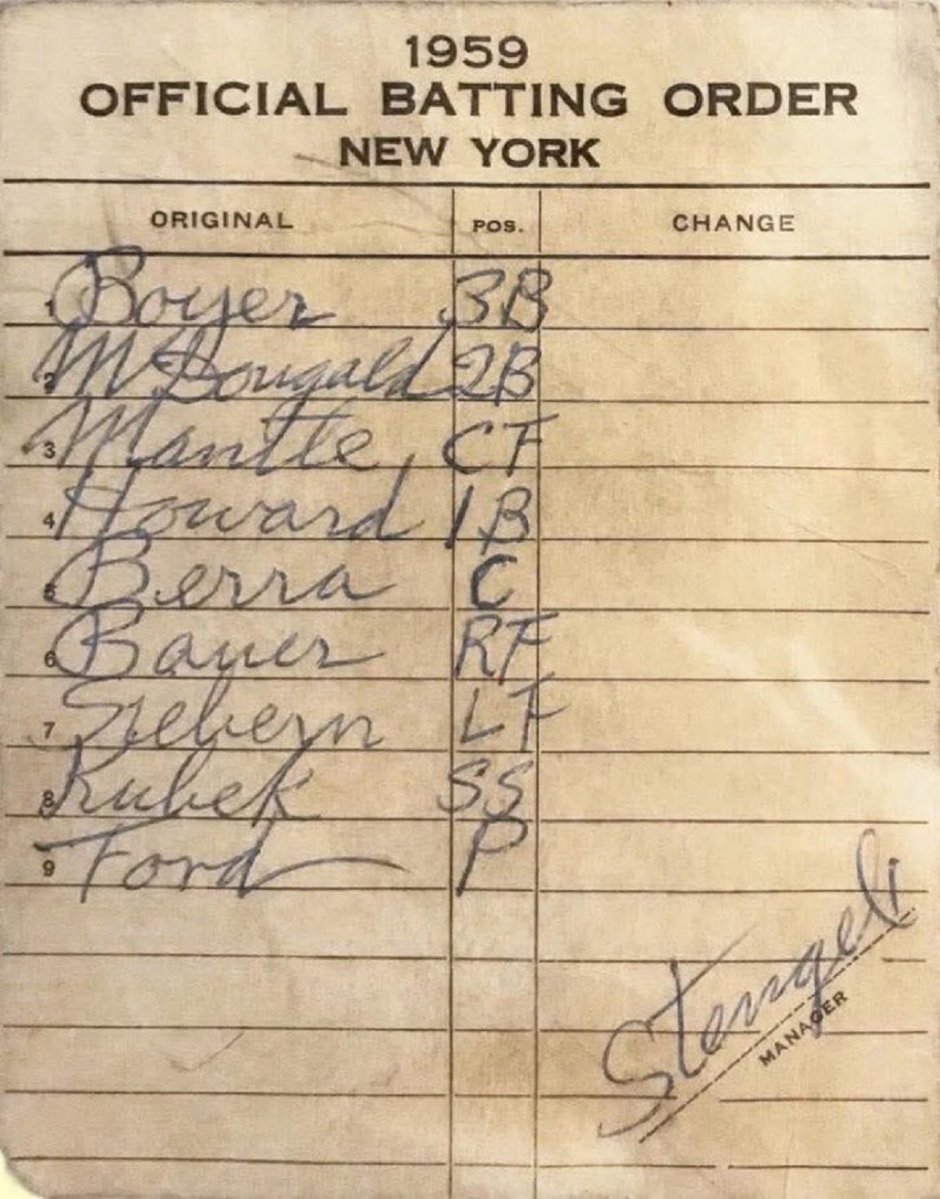 1959
OFFICIAL BATTING ORDER
NEW YORK
ORIGINAL POS. CHANGE
1 Boyer 3B
2 McDougald 2B
3 Mantle CF
4 Howard 1B
5 Berra C
6 Bauer RF
7 Siebern LF
8 Kubek SS
9 Ford P
Stengel
MANAGER